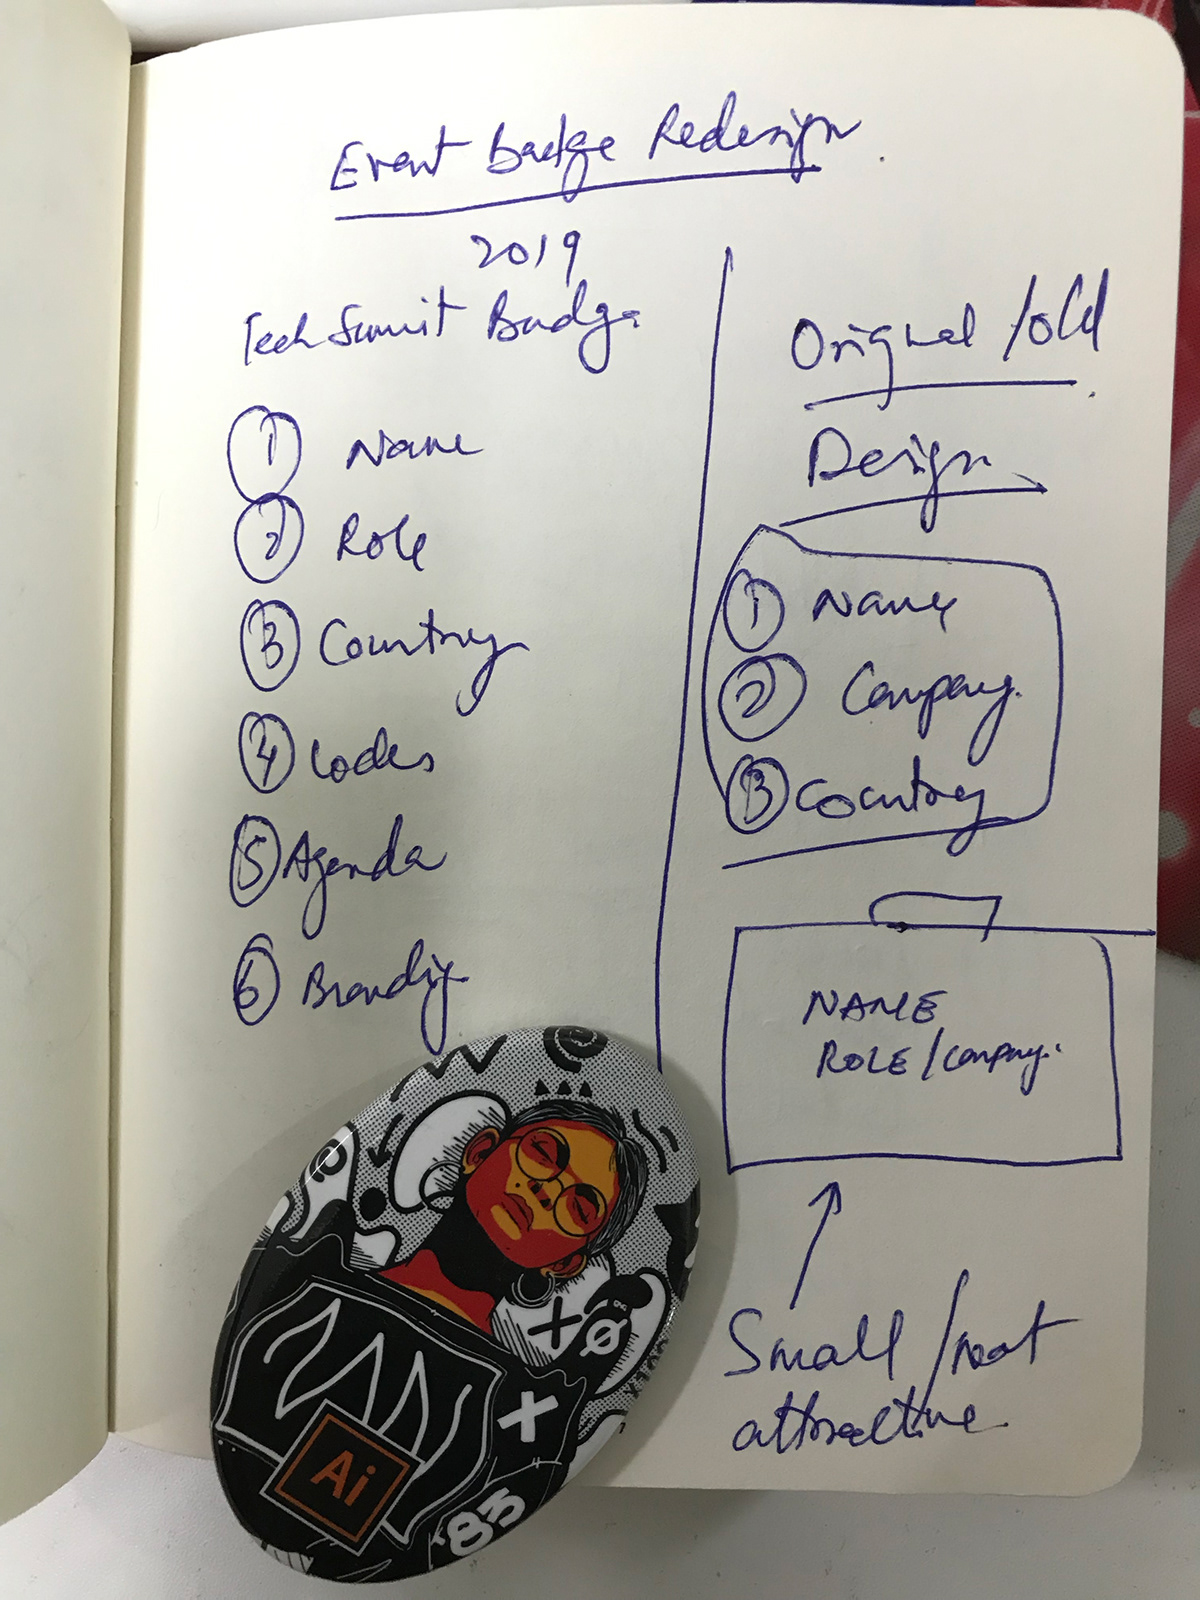 Event Badge Redesign
2019
Tech Sumit Badge
1 Name
2 Role
3 Country
4 Codes
5 Agenda
6 Branding
Original /old
Design
1 Name
2 Company.
3 Country
NAME
ROLE / Company.
Small /not
attractive
Ai
'83